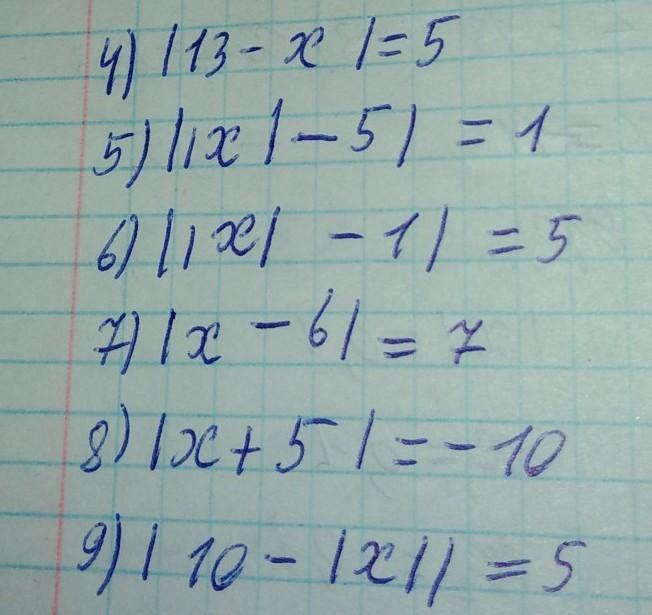 4) |13 - x| = 5
5) ||x| - 5| = 1
6) ||x| - 1| = 5
7) |x - 6| = 7
8) |x + 5| = -10
9) |10 - |x|| = 5